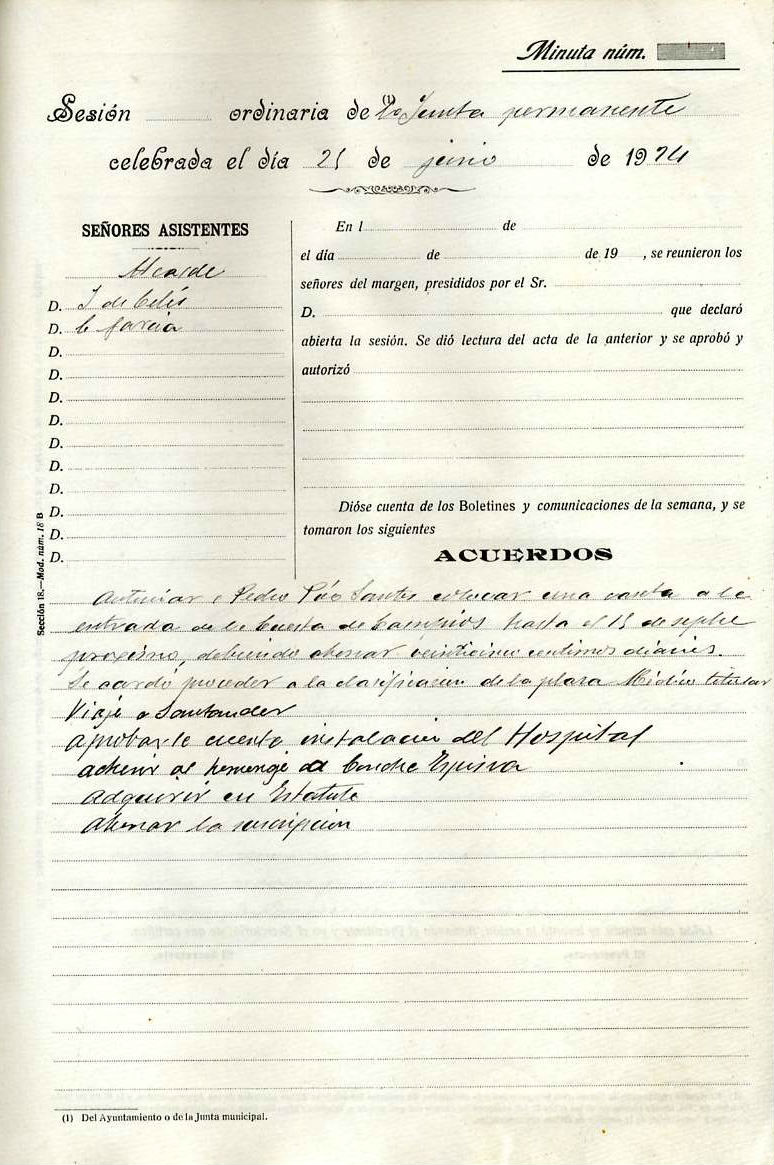 Minuta núm.
Sesión ordinaria de (1) la Junta permanente
celebrada el día 21 de junio de 1924
SEÑORES ASISTENTES
Alcalde
D. J de Celis
D. C García
D.
D.
D.
D.
D.
D.
D.
D.
D.
D.
En l de
el día de de 19 , se reunieron los
señores del margen, presididos por el Sr.
D. que declaró
abierta la sesión. Se dió lectura del acta de la anterior y se aprobó y
autorizó
Dióse cuenta de los Boletines y comunicaciones de la semana, y se
tomaron los siguientes
ACUERDOS
Autorizar a Pedro Pío Santos colocar una caseta a la
entrada de la Cuesta de hasta el 15 de sepbre
proximo, debiendo abonar veinticinco centimos diarios.
Se acordó proceder a la clasificacion de la plaza Médico titular
Viaje a Santander
Aprobar la cuenta instalación del Hospital
adherir al homenaje a Concha Espina
Adquirir un Estatuto
Abonar la suscripcion
Sección 18.—Mod. núm. 18 B
(1) Del Ayuntamiento o de la Junta municipal.